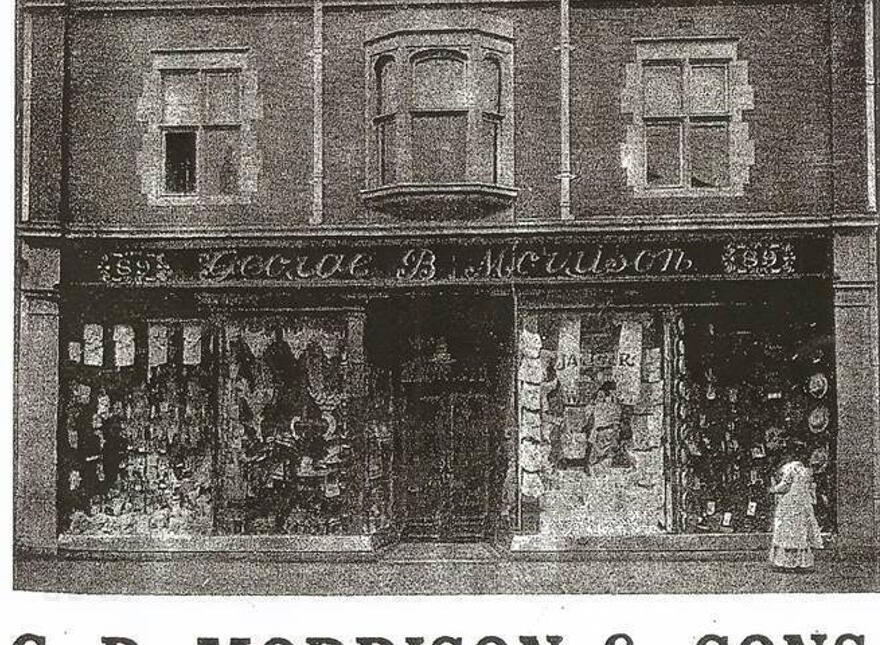 89 George B Morrison 89
JAEGER
G. B. MORRISON & SONS